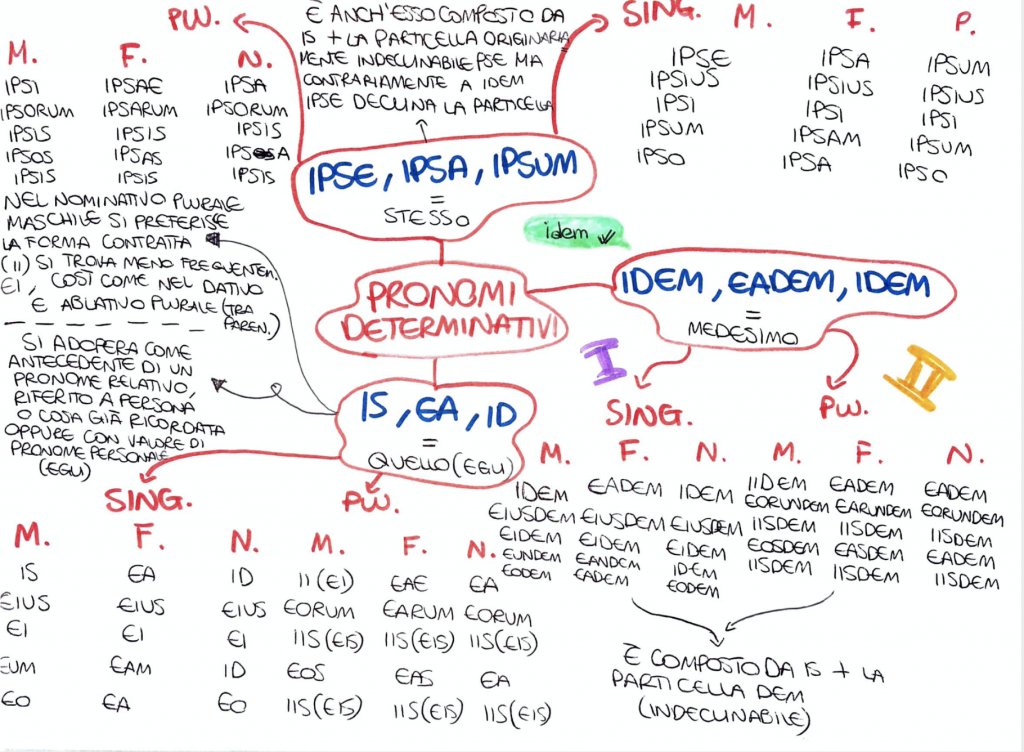 PW.
M. F. N.
IPSI IPSAE IPSA
IPSORUM IPSARUM IPSORUM
IPSIS IPSIS IPSIS
IPSOS IPSAS IPSA
IPSIS IPSIS IPSIS
È ANCH'ESSO COMPOSTO DA
IS + LA PARTICELLA ORIGINARIA
MENTE INDECLINABILE PSE MA
CONTRARIAMENTE A IDEM
IPSE DECLINA LA PARTICELLA
SING. M. F. P.
IPSE IPSA IPSUM
IPSIUS IPSIUS IPSIUS
IPSI IPSI IPSI
IPSUM IPSAM IPSUM
IPSO IPSA IPSO
IPSE, IPSA, IPSUM
=
STESSO
NEL NOMINATIVO PLURALE
MASCHILE SI PREFERISE
LA FORMA CONTRATTA
(II) SI TROVA MENO FREQUENTEM.
EI, COSÌ COME NEL DATIVO
E ABLATIVO PLURALE (TRA
PAREN.)
SI ADOPERA COME
ANTECEDENTE DI UN
PRONOME RELATIVO,
RIFERITO A PERSONA
O COSA GIÀ RICORDATA
OPPURE CON VALORE DI
PRONOME PERSONALE
(EGLI)
idem
PRONOMI
DETERMINATIVI
IDEM, EADEM, IDEM
=
MEDESIMO
I
II
SING.
PW.
M. F. N. M. F. N.
IDEM EADEM IDEM IIDEM EADEM EADEM
EIUSDEM EIUSDEM EIUSDEM EORUNDEM EARUNDEM EORUNDEM
EIDEM EIDEM EIDEM IISDEM IISDEM IISDEM
EUNDEM EANDEM IDEM EOSDEM EASDEM EADEM
EODEM EADEM EODEM IISDEM IISDEM IISDEM
È COMPOSTO DA IS + LA
PARTICELLA DEM
(INDECLINABILE)
IS, EA, ID
=
QUELLO (EGLI)
SING.
PW.
M. F. N. M. F. N.
IS EA ID II (EI) EAE EA
EIUS EIUS EIUS EORUM EARUM EORUM
EI EI EI IIS (EIS) IIS (EIS) IIS (EIS)
EUM EAM ID EOS EAS EA
EO EA EO IIS (EIS) IIS (EIS) IIS (EIS)